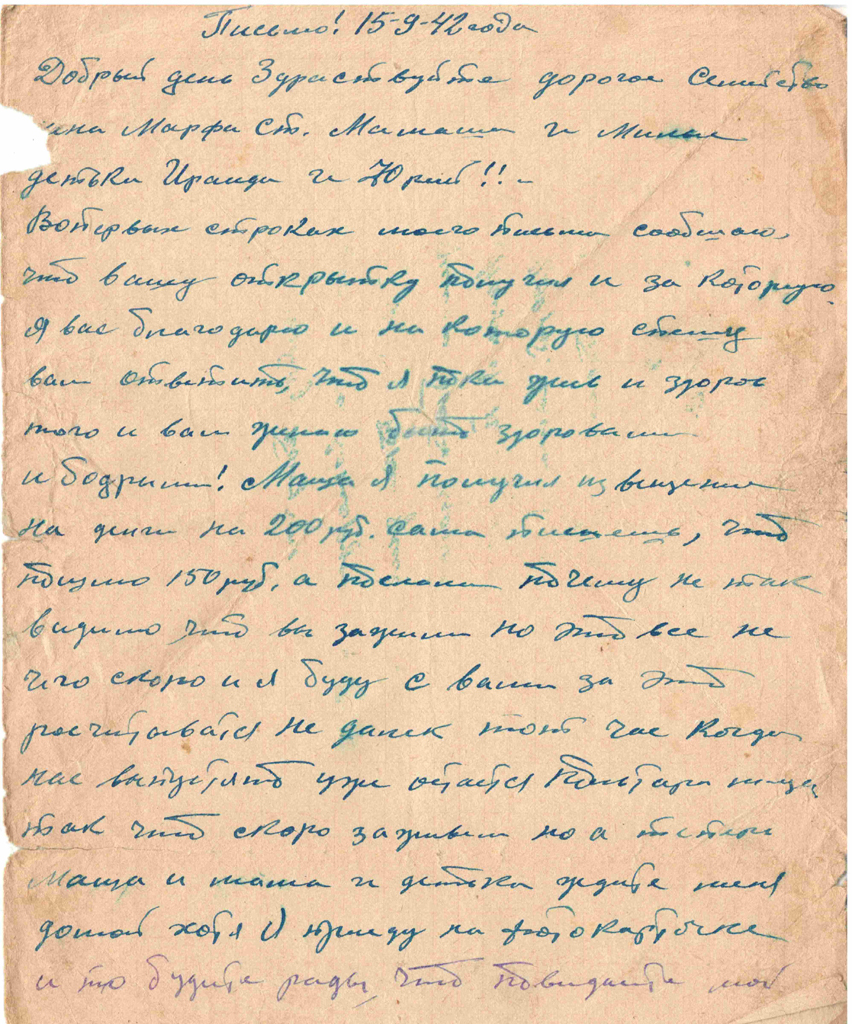 Письмо! 15-9-42 года
Добрый день Здраствуйте дорогое Семейство
Марфа Ст. Мамаша и Милые
детьки Ираида и Юрий!!
Вопервых строках моего письма сообщаю,
что вашу открытку получил и за которую
я вас благодарю и на которую спешу
вам ответить, что я пока жив и здоров
того и вам желаю быть здоровами
и бодрыми! Маша я получил извещение
на деньги на 200 руб. сама пишешь, что
150 руб, а послали почему не так
видимо что вы зажили но это все не
чего скоро и я буду с вами за это
росчитыватся не далек тот час когда
нас выпустят уже остается полтара месеца
так что скоро заживем но а теперь
Маша и мама и детьки ждите меня
домой хотя я приеду на фотокарточке
и то будите рады, что повидаите мой